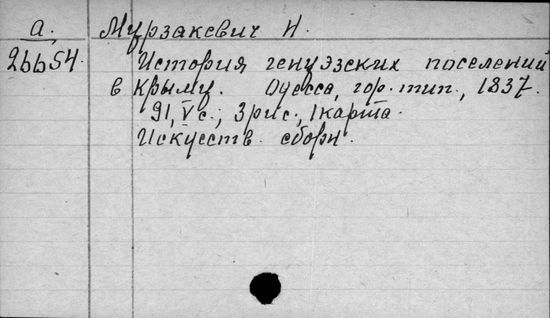 а. Мурзакевич Н.
26654. История генуэзских поселений
в Крыму. Одесса, гор. тип., 1837.
91, V с.; 3 рис.; 1 карта.
Искусств. сборн.